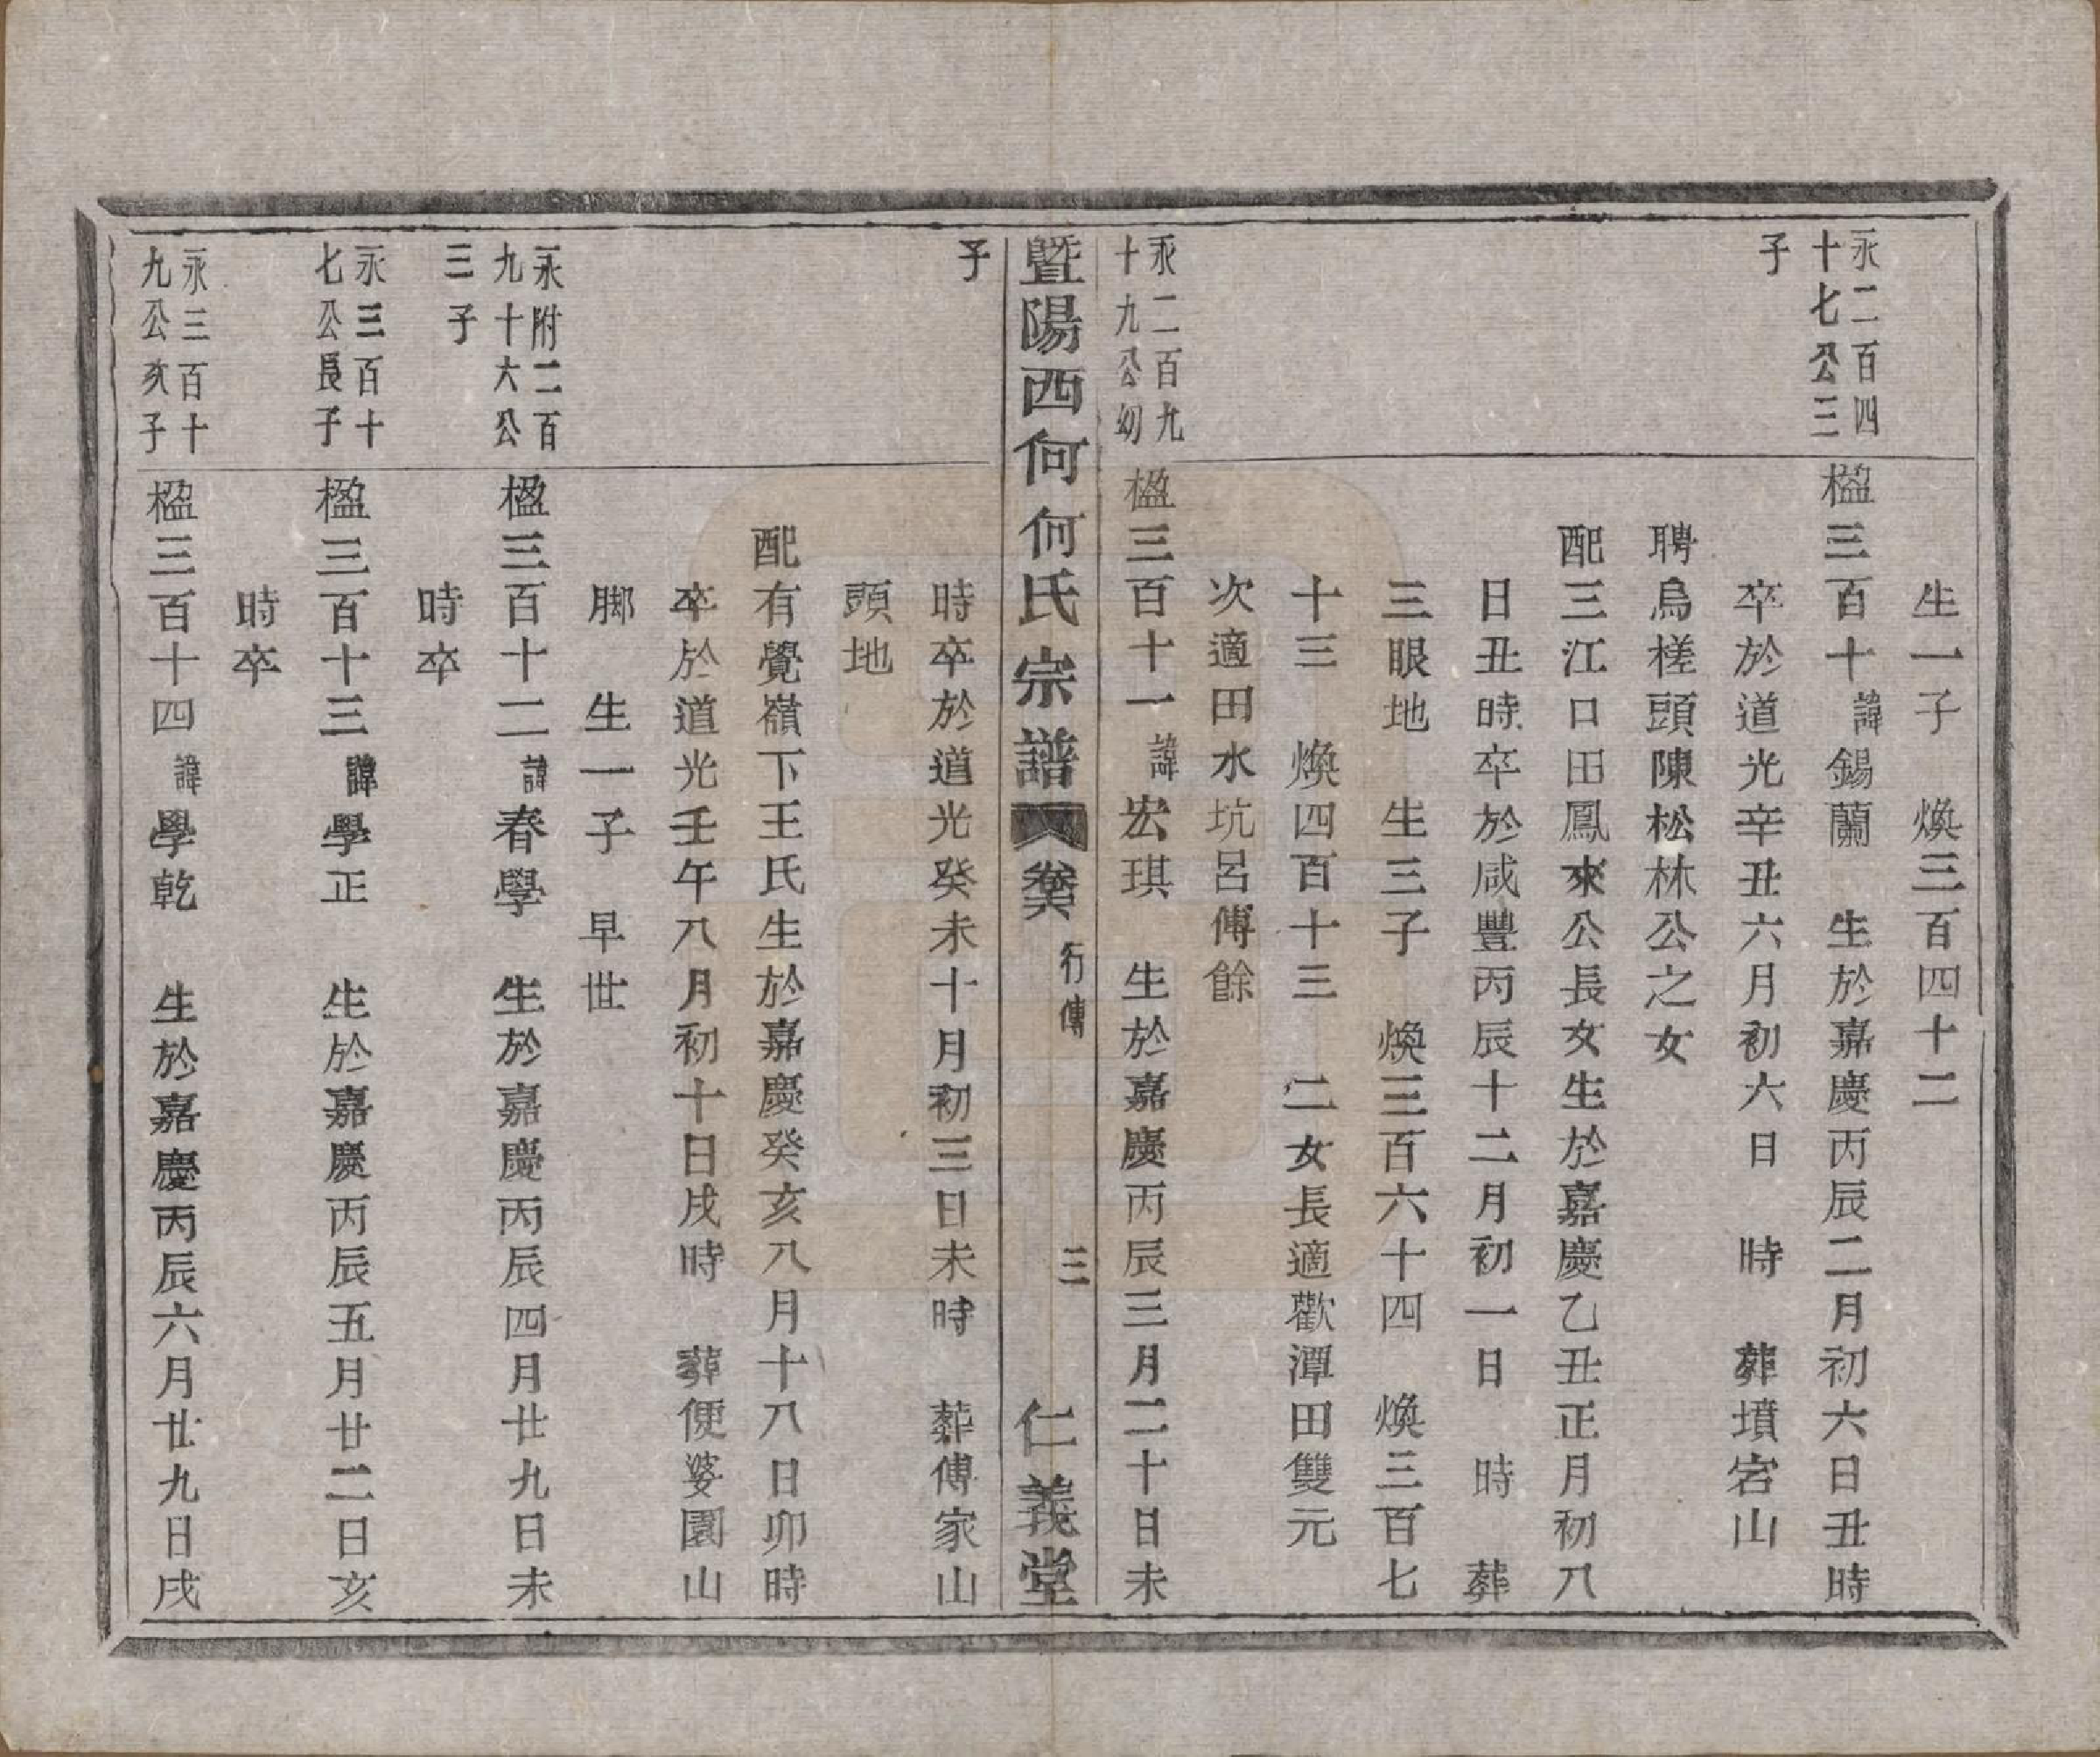 生一子　煥三百四十二
永二百四
十七公三
子
楹三百十諱錫蘭　生於嘉慶丙辰二月初六日丑時
卒於道光辛丑六月初六日　時　葬墳宕山
聘烏槎頭陳松林公之女
配三江口田鳳來公長女生於嘉慶乙丑正月初八
日丑時卒於咸豐丙辰十二月初一日　時　葬
三眼地　生三子　煥三百六十四　煥三百七
十三　煥四百十三　二女長適歡潭田雙元
次適田水坑呂傅餘
永二百九
十九公幼
楹三百十一諱宏琪　生於嘉慶丙辰三月二十日未
暨陽西何何氏宗譜　卷六　行傳　三　仁義堂
子
時卒於道光癸未十月初三日未時　葬傅家山
頭地
配有覺嶺下王氏生於嘉慶癸亥八月十八日卯時
卒於道光壬午八月初十日戌時　葬便婆園山
脚　生一子　早世
永附二百
九十六公
三子
楹三百十二諱春學　生於嘉慶丙辰四月廿九日未
時卒
永三百十
七公長子
楹三百十三諱學正　生於嘉慶丙辰五月廿二日亥
時卒
永三百十
九公次子
楹三百十四諱學乾　生於嘉慶丙辰六月廿九日戌